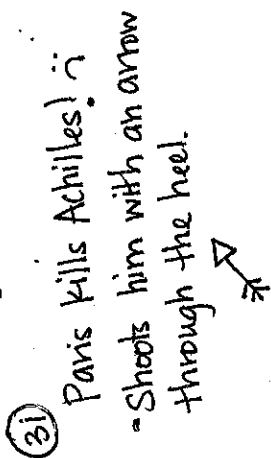 31
Paris kills Achilles! :)
- Shoots him with an arrow
through the heel.